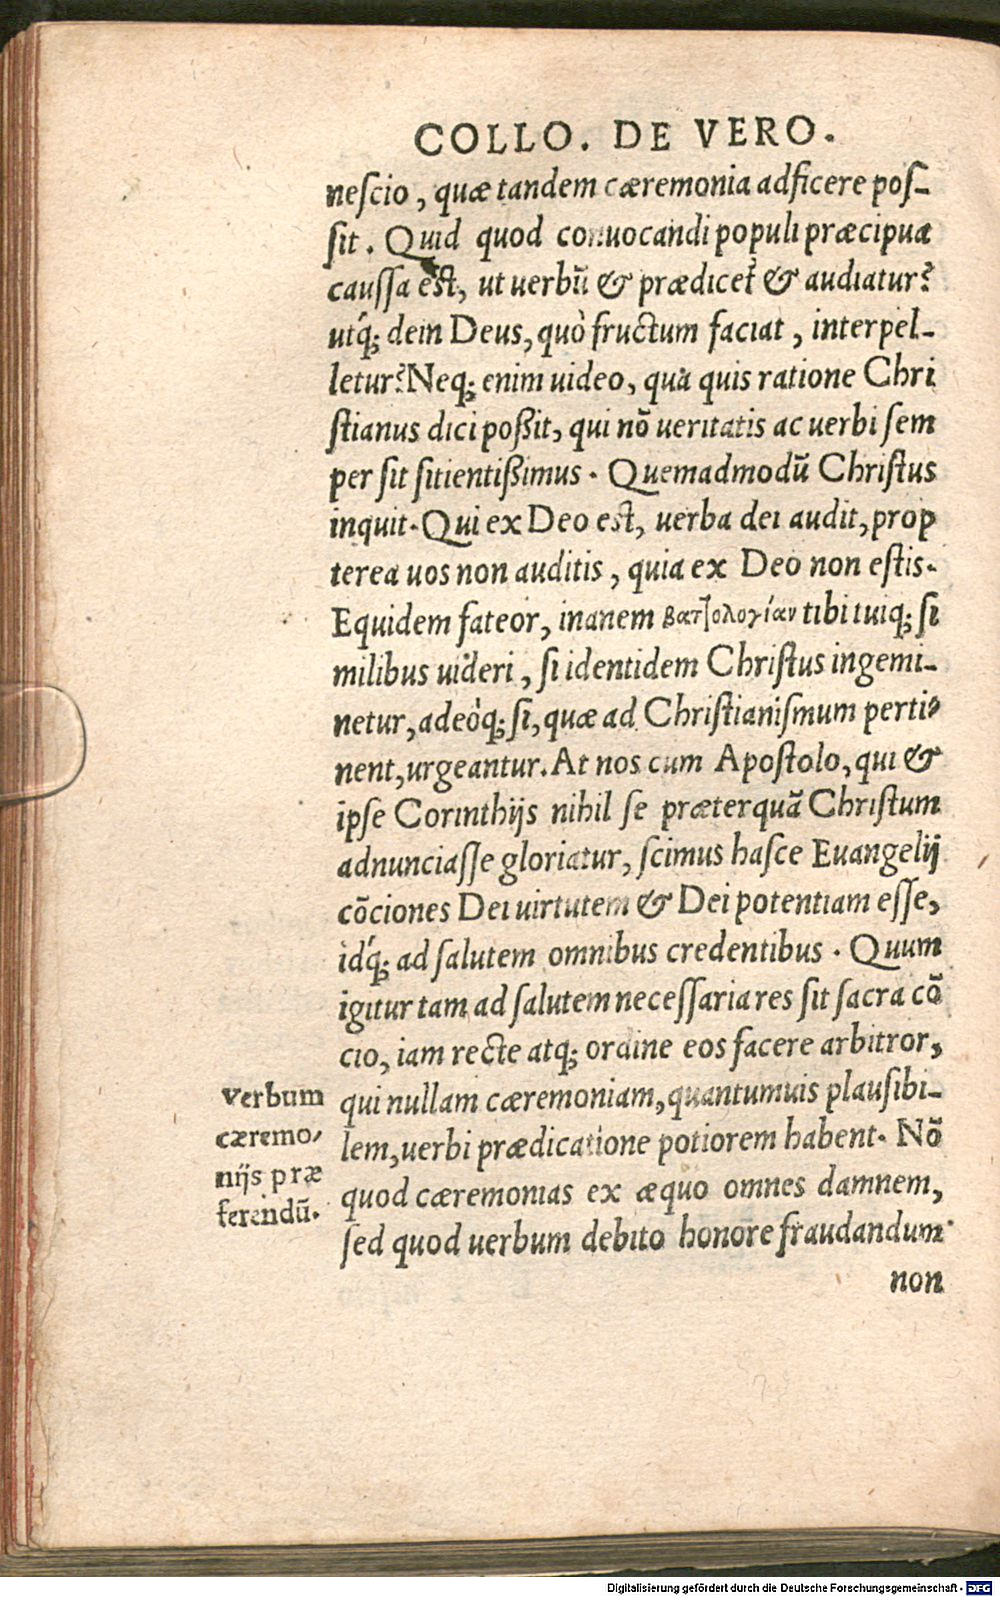 COLLO. DE VERO.
neſcio, quæ tandem cæremonia adficere poſ-
ſit. Quid quod conuocandi populi præcipua
cauſſa eſt, ut uerbū & prædicet̃ & audiatur?
utq́; dein Deus, quò fructum faciat, interpel-
letur? Neq; enim uideo, qua quis ratione Chri
ſtianus dici poßit, qui nō ueritatis ac uerbi ſem
per ſit ſitientißimus. Quemadmodū Chriſtus
inquit. Qui ex Deo eſt, uerba dei audit, prop
terea uos non auditis, quia ex Deo non eſtis.
Equidem fateor, inanem βατ]ολογίαν tibi tuiq; ſi
milibus uideri, ſi identidem Chriſtus ingemi-
netur, adeòq; ſi, quæ ad Chriſtianiſmum perti-
nent, urgeantur. At nos cum Apoſtolo, qui &
ipſe Corinthijs nihil ſe præterquā Chriſtum
adnunciaſſe gloriatur, ſcimus haſce Euangelij
cōciones Dei uirtutem & Dei potentiam eſſe,
idq́; ad ſalutem omnibus credentibus. Quum
igitur tam ad ſalutem neceſſaria res ſit ſacra cō
cio, iam recte atq; ordine eos facere arbitror,
qui nullam cæremoniam, quantumuis plauſibi-
lem, uerbi prædicatione potiorem habent. Nō
quod cæremonias ex æquo omnes damnem,
ſed quod uerbum debito honore fraudandum
non
Verbum
cæremo-
nijs præ
ferendū.
Digitalisierung gefördert durch die Deutsche Forschungsgemeinschaft - DFG